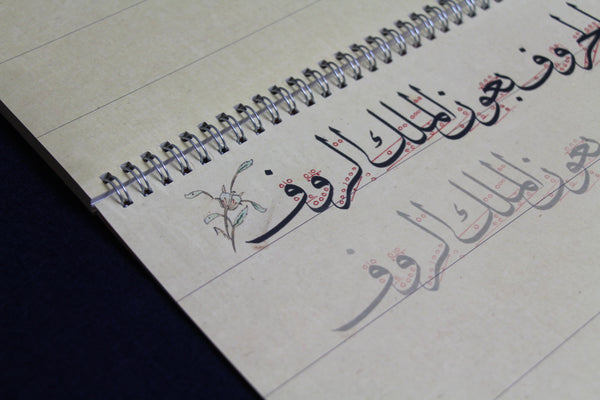 الحروف بعون الملك الروف
بعون الملك الروف